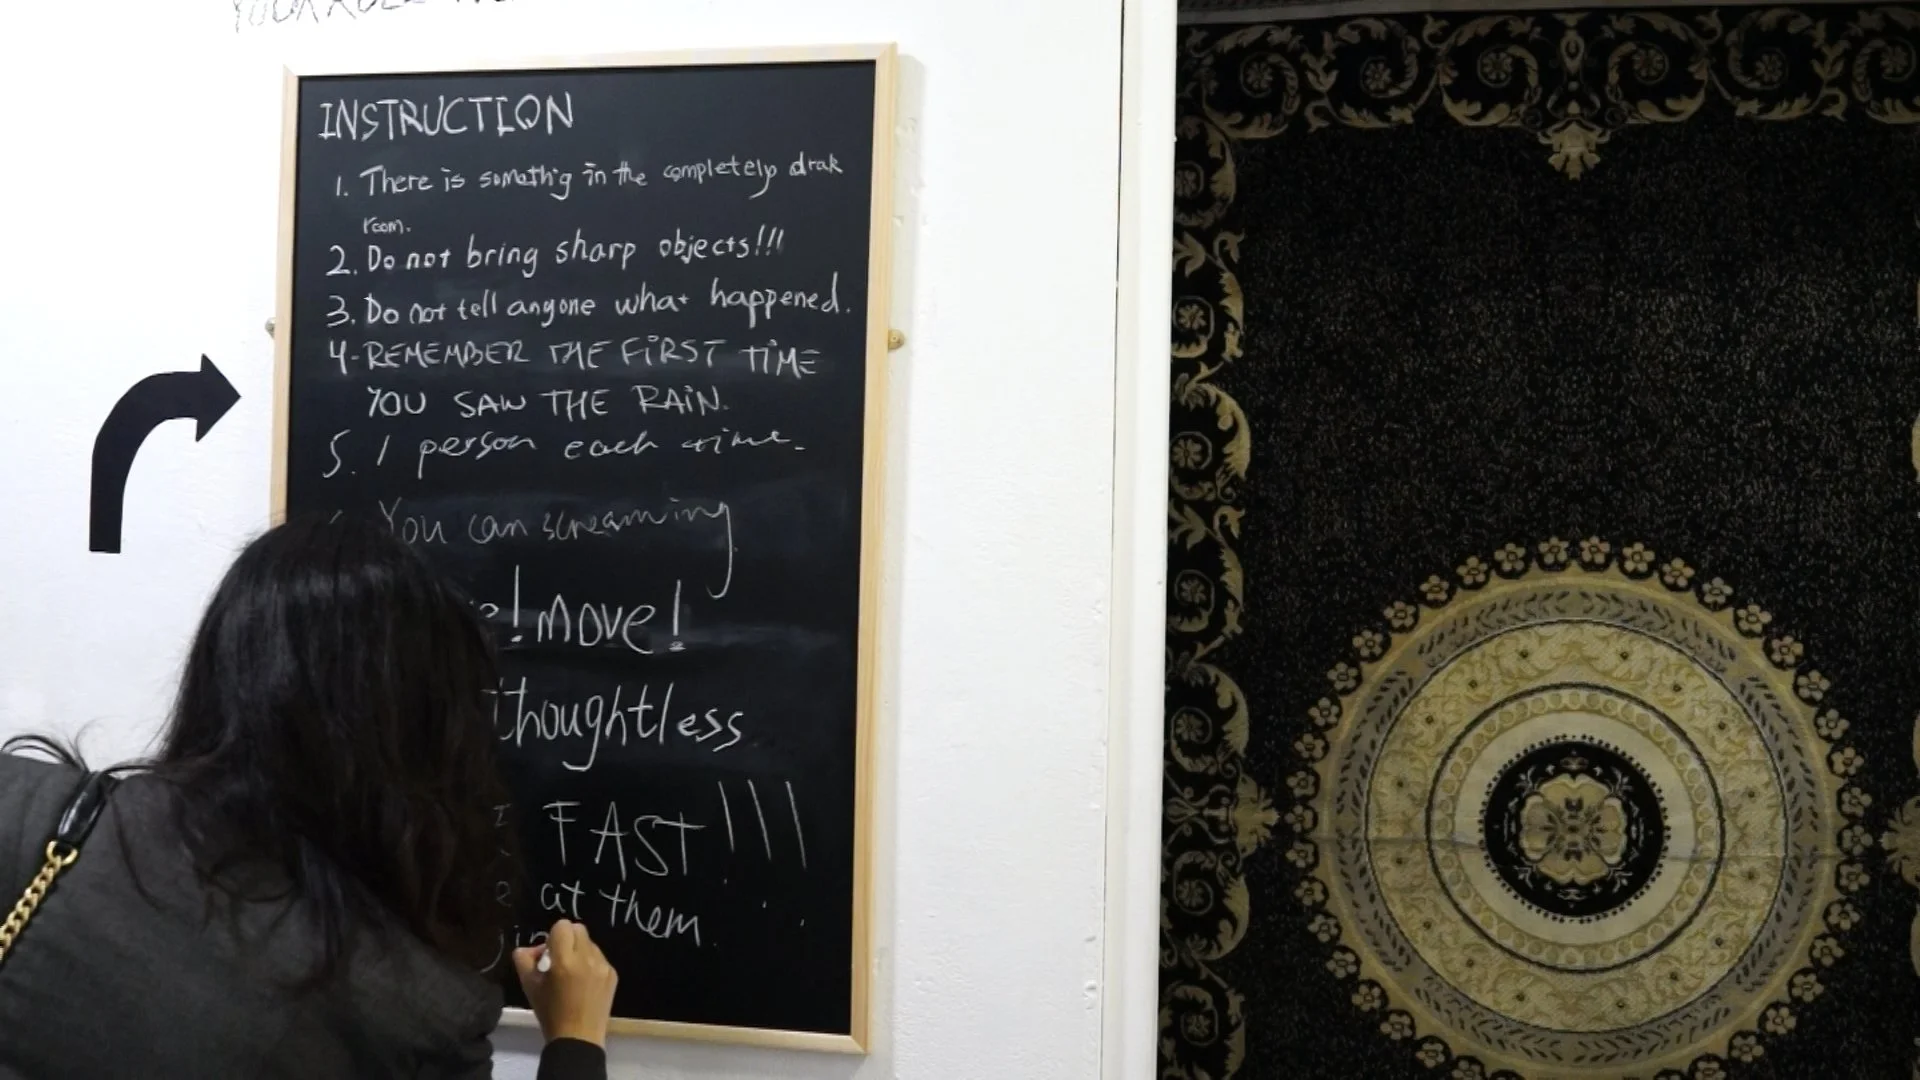 YOUR
INSTRUCTION
1. There is somethig in the completely drak
room.
2. Do not bring sharp objects!!!
3. Do not tell angone what happened.
4-REMEMBER THE FIRST TIME
YOU SAW THE RAIN.
5. 1 person each time.
You can screaming
! move!
thoughtless
FAST!!!
at them